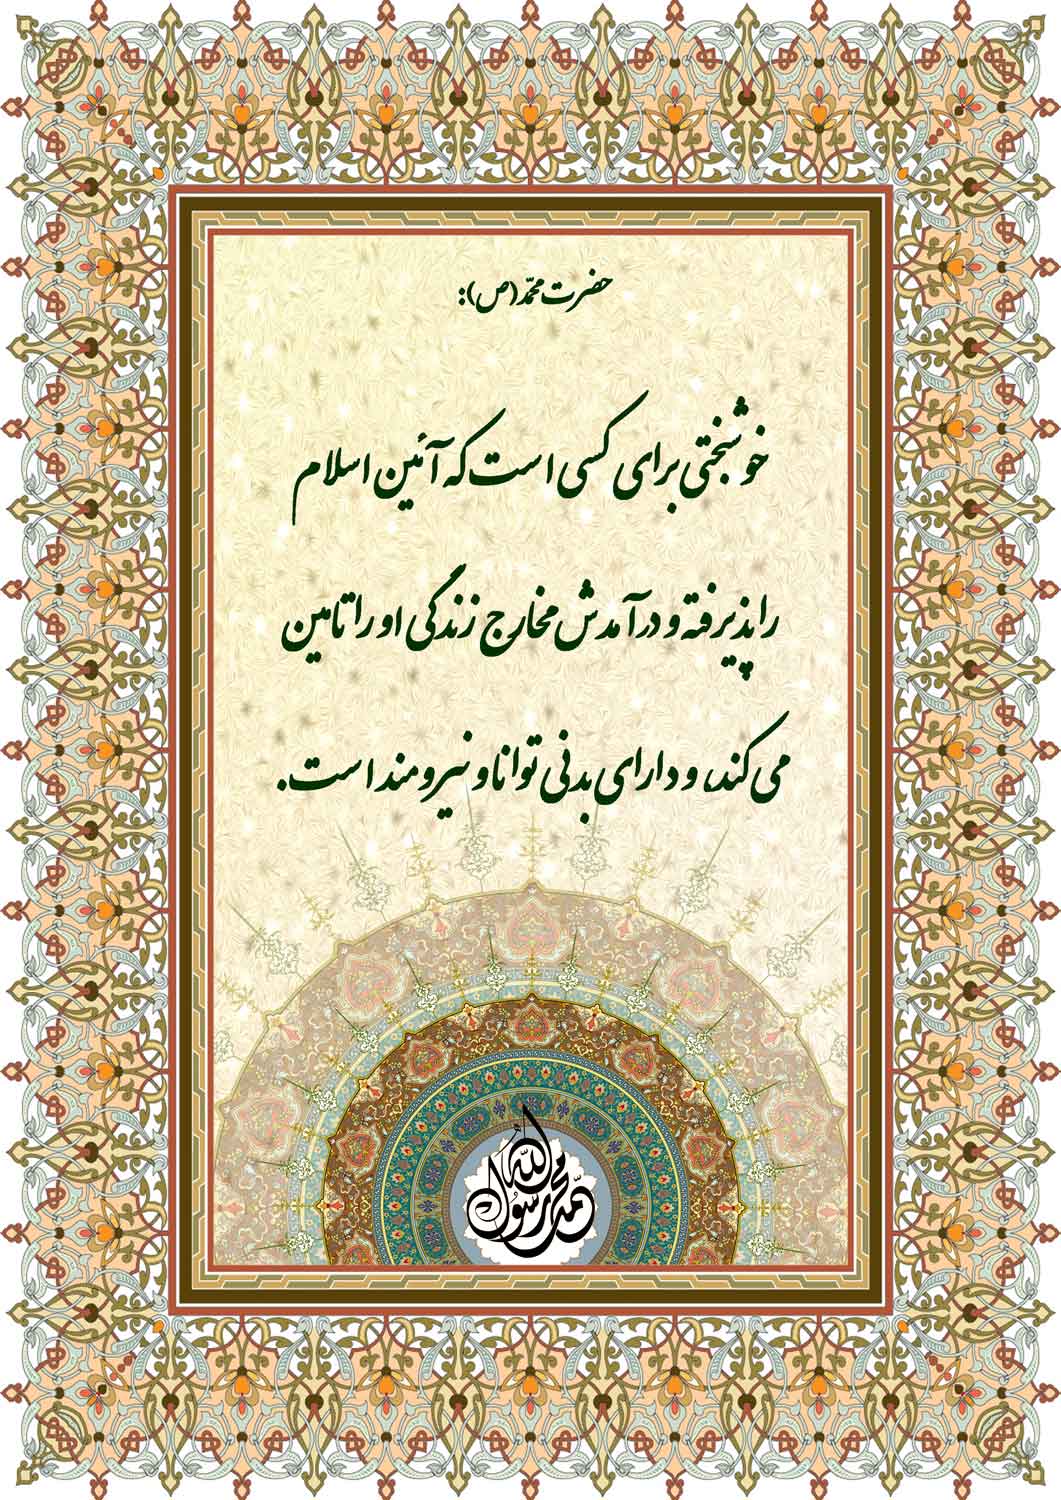 حضرت محمّد (ص):
خوشبختی برای کسی است که آئین اسلام
را پذیرفته و درآمدش مخارج زندگی او را تامین
می کند، و دارای بدنی توانا و نیرومند است.
محمّد رسول الله